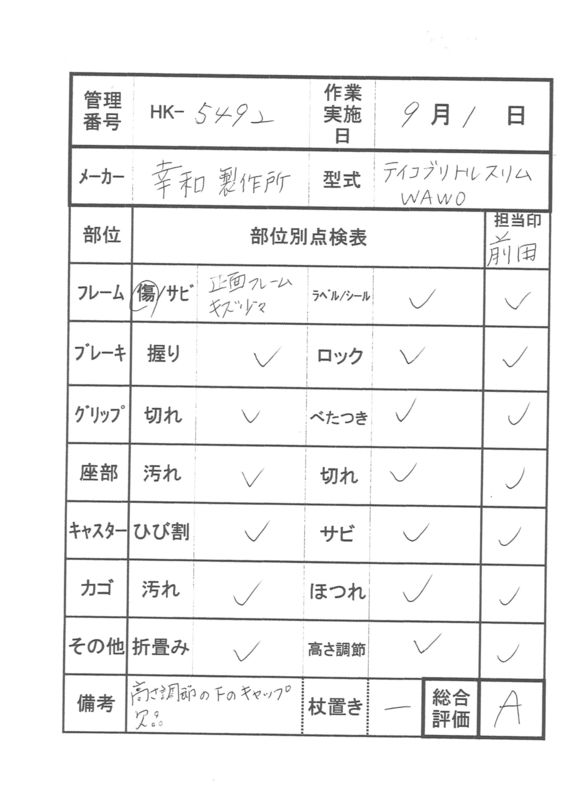 管理番号 HK-5492 作業実施日 9月1日
メーカー 幸和製作所 型式 テイコブリトルスリム
WAW0
部位 部位別点検表 担当印
前田
フレーム 傷/サビ 正面フレーム ラベル/シール ✓ ✓
キズ
ブレーキ 握り ✓ ロック ✓ ✓
グリップ 切れ ✓ べたつき ✓ ✓
座部 汚れ ✓ 切れ ✓ ✓
キャスター ひび割 ✓ サビ ✓ ✓
カゴ 汚れ ✓ ほつれ ✓ ✓
その他 折畳み ✓ 高さ調節 ✓ ✓
備考 高さ調節の下のキャップ 杖置き ー 総合評価 A
欠